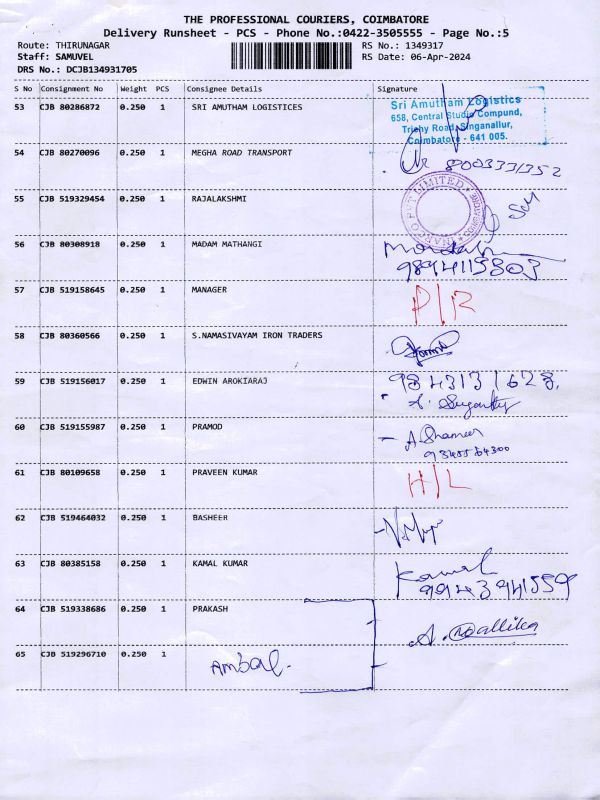 THE PROFESSIONAL COURIERS, COIMBATORE
Delivery Runsheet - PCS - Phone No.:0422-3505555 - Page No.:5
Route: THIRUNAGAR RS No.: 1349317
Staff: SAMUVEL RS Date: 06-Apr-2024
DRS No.: DCJB134931705
S No Consignment No Weight PCS Consignee Details Signature
53 CJB 80286872 0.250 1 SRI AMUTHAM LOGISTICES
Sri Amutham Logistics
658, Central Studio Compund,
Trichy Road, Singanallur,
Coimbatore - 641 005.
54 CJB 80270096 0.250 1 MEGHA ROAD TRANSPORT
8003331352
55 CJB 519329454 0.250 1 RAJALAKSHMI
PVT LIMITED
56 CJB 80308918 0.250 1 MADAM MATHANGI
9894115803
57 CJB 519158645 0.250 1 MANAGER P/R
58 CJB 80360566 0.250 1 S.NAMASIVAYAM IRON TRADERS
59 CJB 519156017 0.250 1 EDWIN AROKIARAJ 9843131628.
60 CJB 519155987 0.250 1 PRAMOD A. Shameer
61 CJB 80109658 0.250 1 PRAVEEN KUMAR H/L
62 CJB 519464032 0.250 1 BASHEER
63 CJB 80385158 0.250 1 KAMAL KUMAR Kamal
9943941559
64 CJB 519338686 0.250 1 PRAKASH A. Mallika
65 CJB 519296710 0.250 1 Ambal.